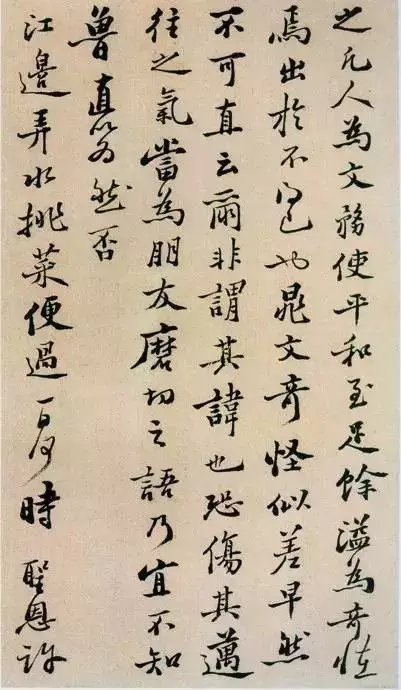 之凡人為文務使平和至足餘溢為奇怪
焉出於不得已也晁文奇怪似差早然
不可直云爾非謂其諱也恐傷其邁
往之氣當為朋友磨切之語乃宜不知
魯直以為然否
江邊弄水挑菜便過一日時聖恩許